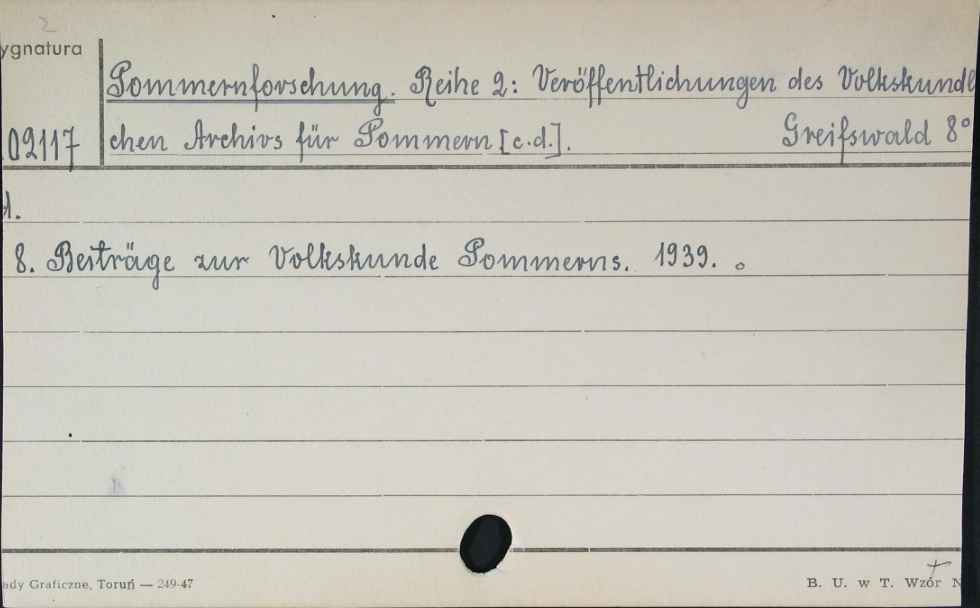 2
ygnatura
Pommernforschung. Reihe 2: Veröffentlichungen des Volkskundl
02117 chen Archivs für Pommern [c.d.]. Greifswald 8°
A.
8. Beiträge zur Volkskunde Pommerns. 1939.
ady Graficzne, Toruń — 249-47
B. U. w T. Wzór N